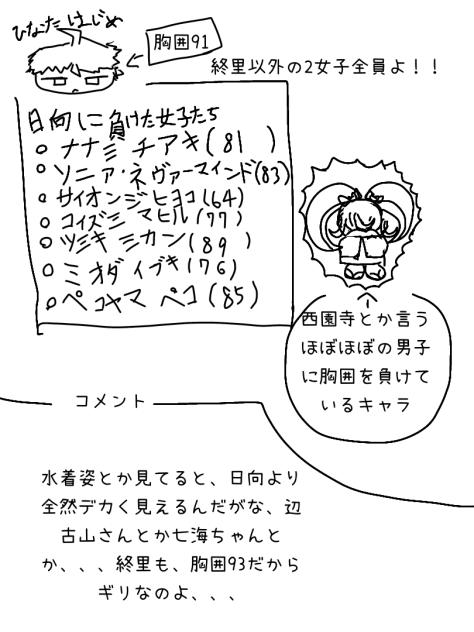 ひなたはじめ
胸囲91
終里以外の2女子全員よ！！
日向しに負けた女子たち
ナナミ チアキ(81)
ソニア・ネヴァーマインド(83)
サイオンジヒヨコ(64)
コイズミマヒル(77)
ツミキ ミカン(89)
ミオダイブキ(76)
ペコヤマ ペコ(85)
西園寺とか言う
ほぼほぼの男子
に胸囲を負けて
いるキャラ
コメント
水着姿とか見てると、日向より
全然デカく見えるんだがな、辺
古山さんとか七海ちゃんと
か、、、終里も、胸囲93だから
ギリなのよ、、、